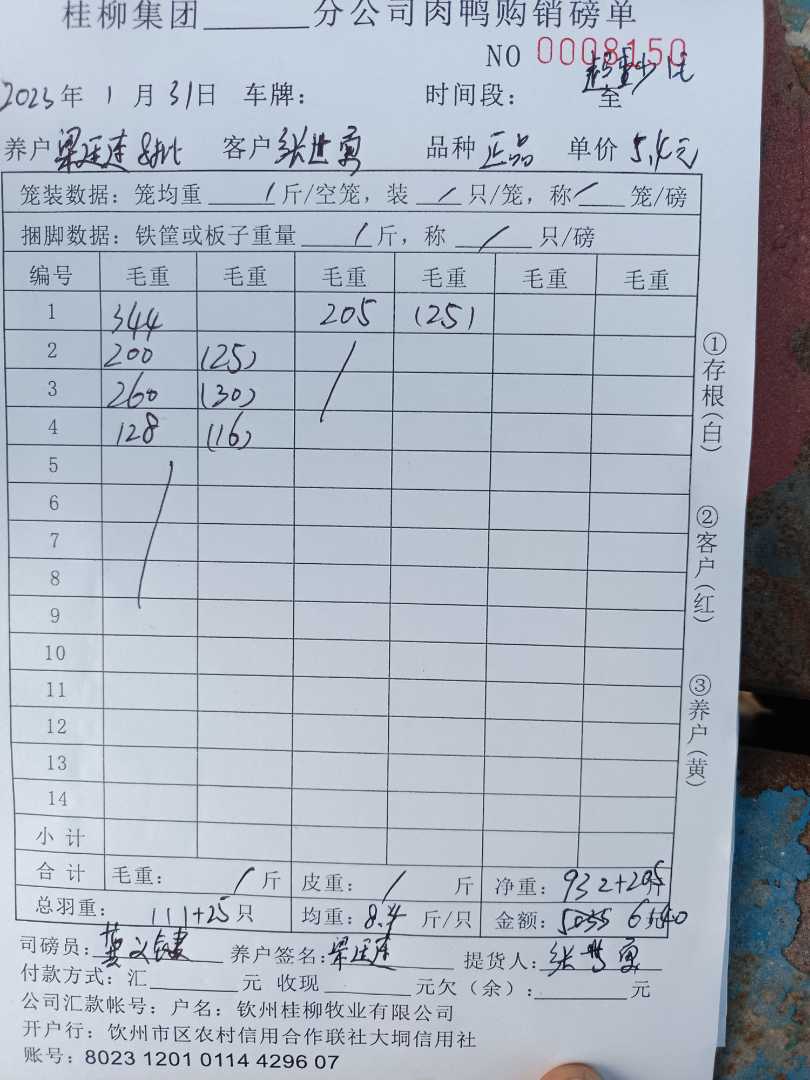 桂柳集团______分公司肉鸭购销磅单
NO 0008150
2023年 1月31日 车牌： 时间段： 至
养户 梁廷连 客户 张世寓 品种 正品 单价 5.4元
笼装数据：笼均重 / 斤/空笼，装 / 只/笼，称 / 笼/磅
捆脚数据：铁筐或板子重量 / 斤，称 / 只/磅
编号 毛重 毛重 毛重 毛重 毛重 毛重
1 344 205 (25)
2 200 (25) /
3 260 (30)
4 128 (16)
5 /
6
7
8
9
10
11
12
13
14
小计
合计 毛重： / 斤 皮重： / 斤 净重：932+205斤
总羽重： 111+25只 均重：8.4 斤/只 金额：5035
司磅员： 养户签名：梁廷连 提货人：张
付款方式：汇______元 收现______元欠（余）：______元
公司汇款帐号：户名：钦州桂柳牧业有限公司
开户行：饮州市区农村信用合作联社大垌信用社
账号：8023 1201 0114 4296 07
①存根(白)
②客户(红)
③养户(黄)